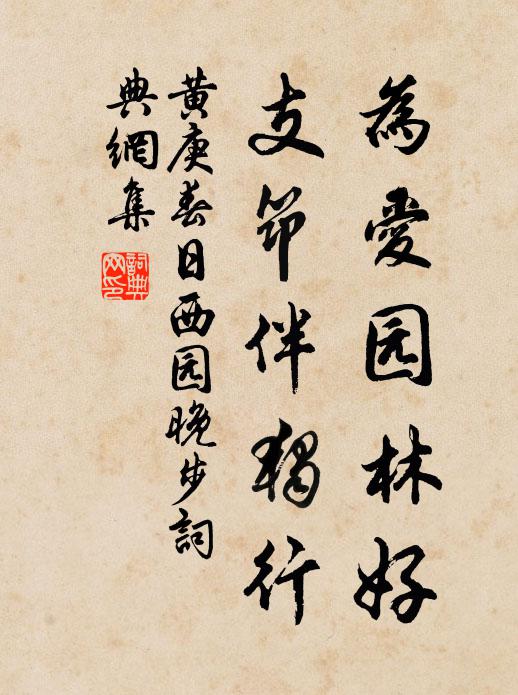 為愛园林好
支筇伴獨行
黄庚春日西园晚步詞
典網集
詞典
网印